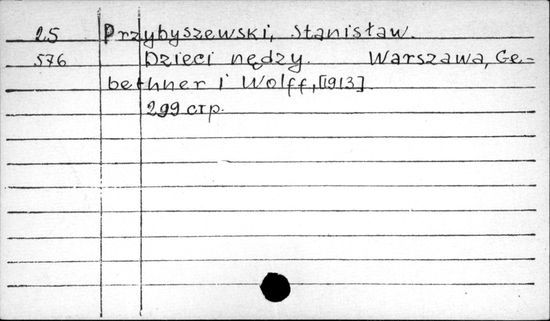 25 Przybyszewski, Stanisław.
576 Dzieci nędzy. Warszawa, Ge-
bethner i Wolff, [1913].
299 стр.